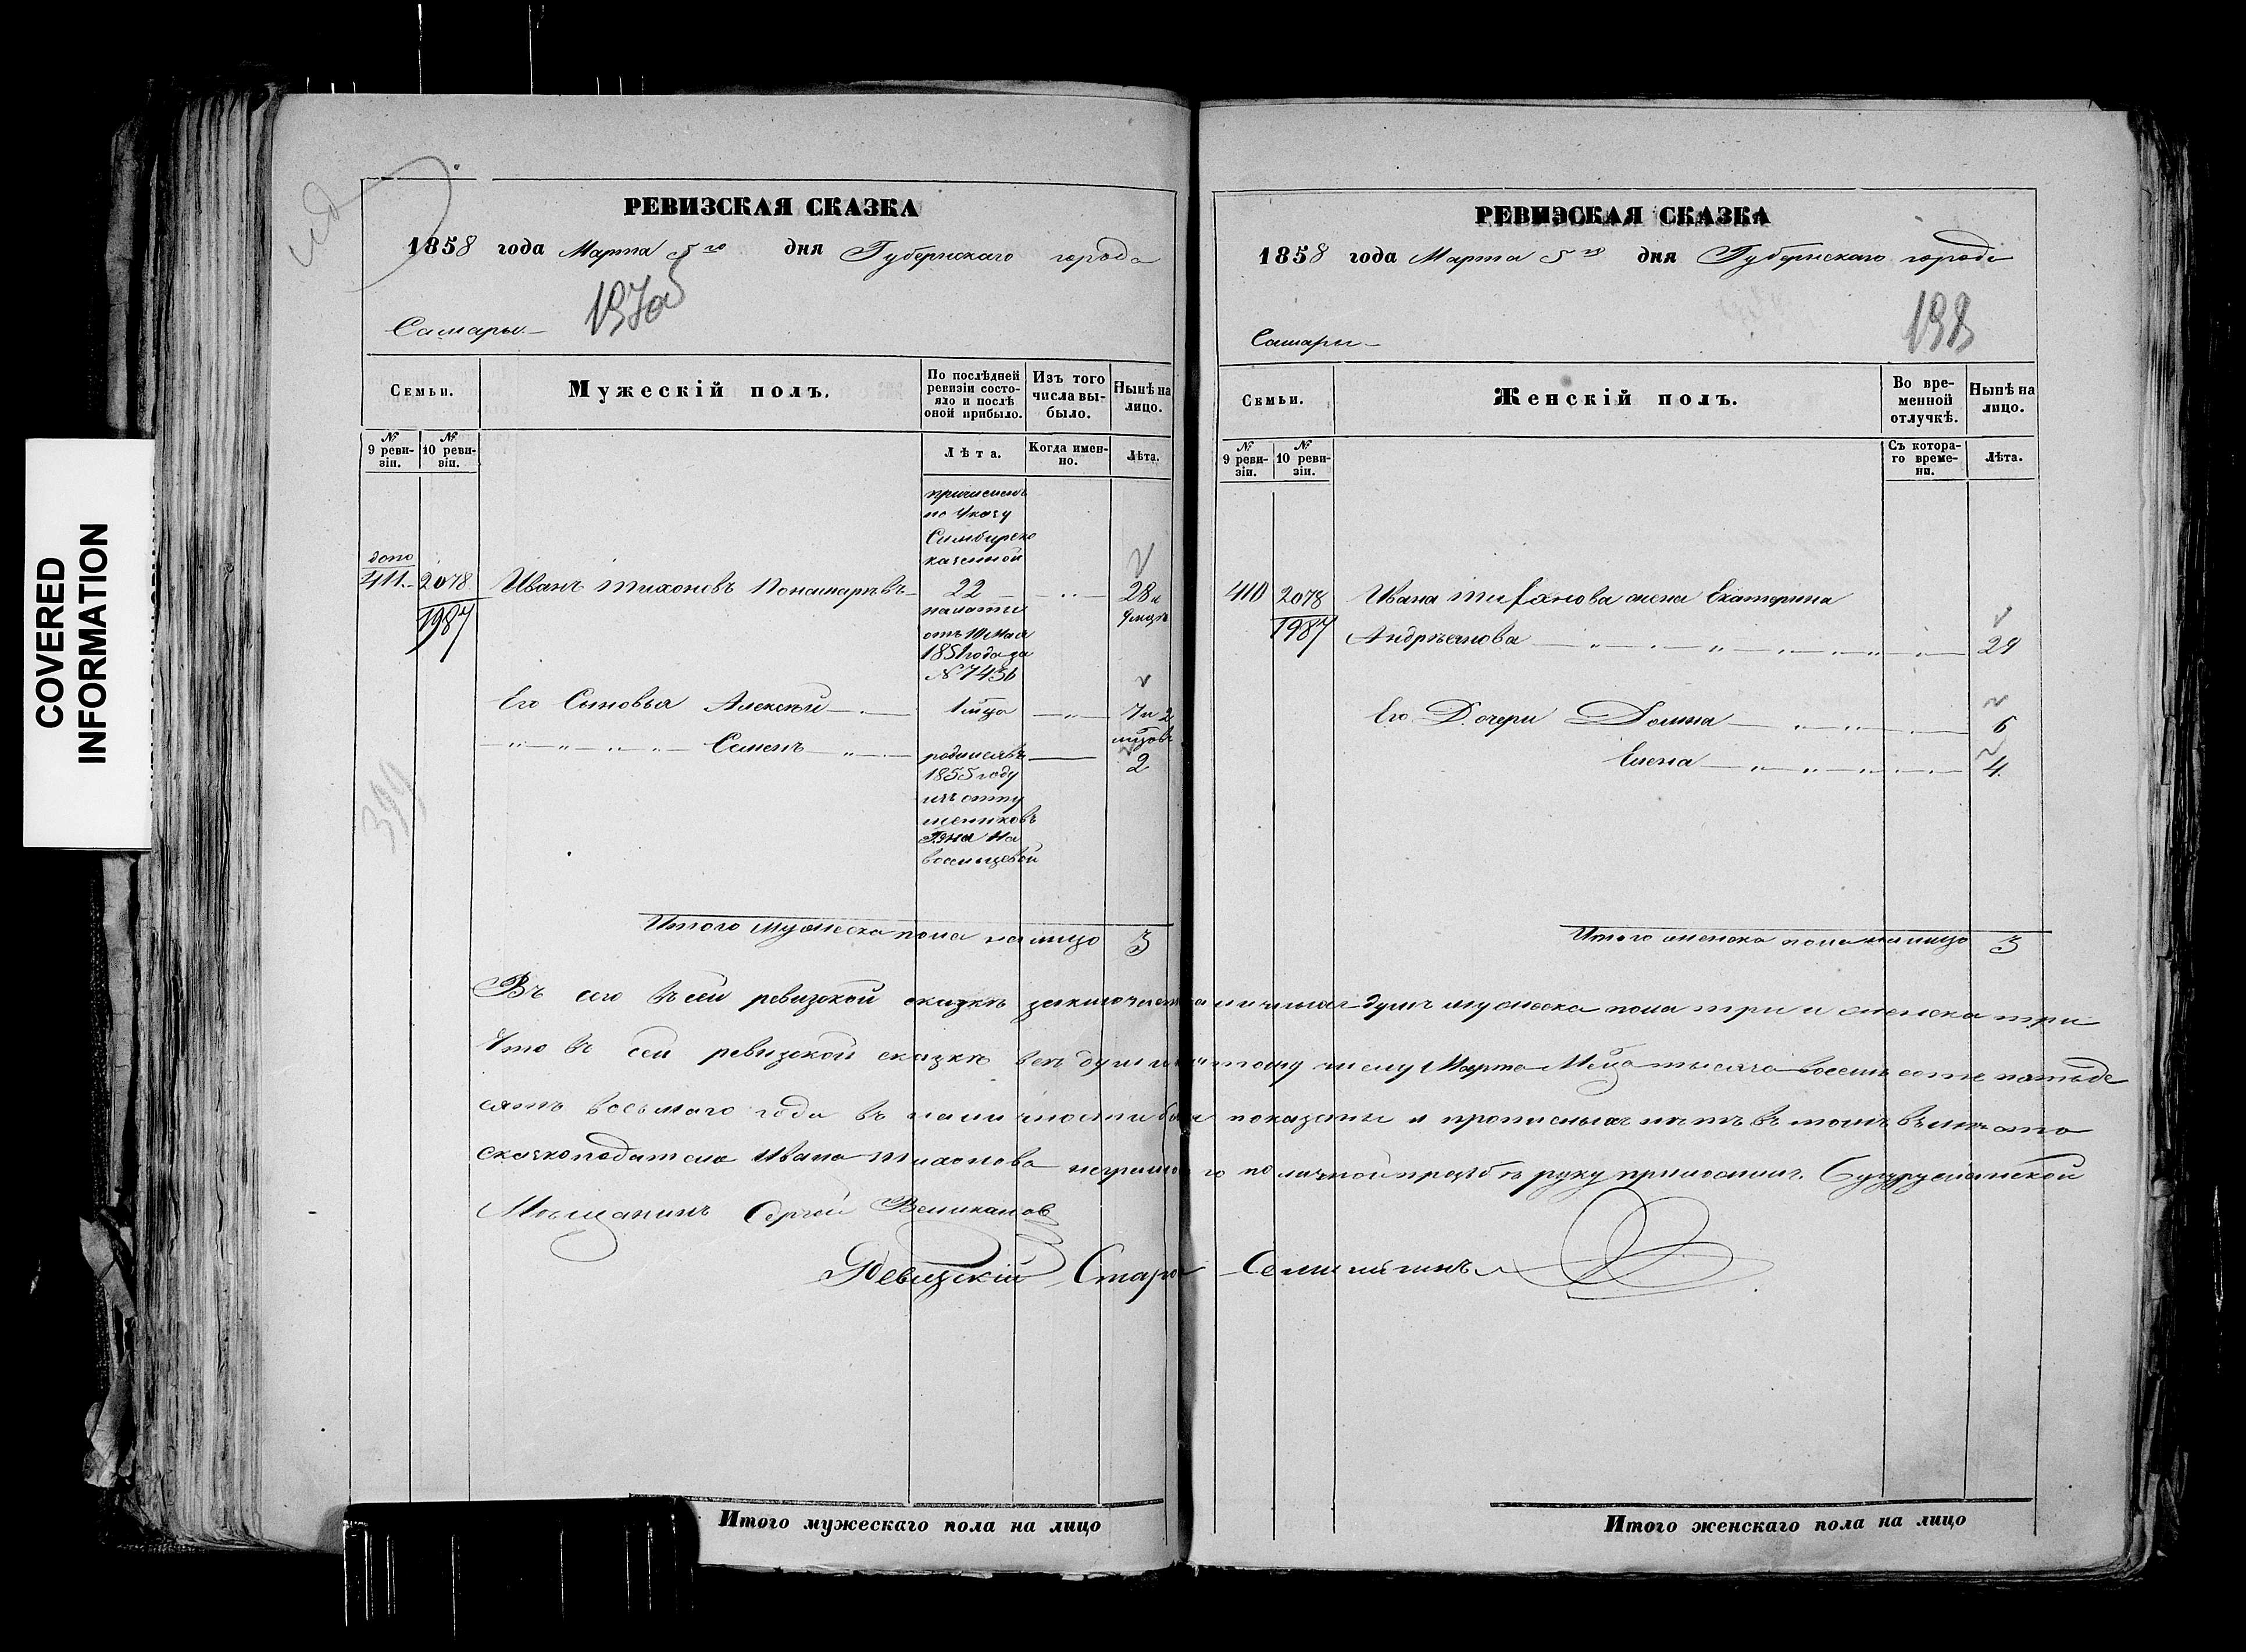 COVERED
INFORMATION
РЕВИЗСКАЯ СКАЗКА
1858 года Марта 5го дня Губернскаго города
Самары
197об
Семьи.
Мужескій полъ.
По послѣдней ревизіи состояло и послѣ оной прибыло.
Изъ того числа выбыло.
Нынѣ на лицо.
№ 9 ревизіи.
№ 10 ревизіи.
Лѣта.
Когда именно.
Лѣта.
причисленъ
по Указу
Симбирско
казенной
допо
411. 2078 Иванъ Тихоновъ Понамаревъ 22 28 и
палаты
1987
отъ 10 Мая
1851 года за
№ 7456
Его Сыновья Алексѣй 1 мѣца 7 и 2
мѣцовъ
Семенъ родился въ 2
1855 году
изъ отпу
щениковъ
399
Итого мужеска пола на лицо 3
РЕВИЗСКАЯ СКАЗКА
1858 года Марта 5го дня Губернскаго города
Самары
198
Семьи.
Женскій полъ.
Во временной отлучкѣ.
Нынѣ на лицо.
№ 9 ревизіи.
№ 10 ревизіи.
Съ котораго времени.
Лѣта.
410 2078 Ивана Тихонова жена Екатерина
1987 Андрѣянова 29
Его Дочери Домна 6
Елена 4
Итого женска пола на лицо 3
Въ сей ревизской сказкѣ заключается наличныхъ душъ мужеска пола три и женска три
Что въ сей ревизской сказкѣ всѣ души тому числу Марта Мѣца тысяча восемь сотъ пятьде
сятъ восьмаго года въ наличности показаны и прописныхъ нѣтъ въ томъ вмѣсто
сказкоподателя Ивана Тихонова неграмотнаго по личной прозьбѣ руку приложилъ
Мѣщанинъ Сергей Великанов
Ревизскій Староста
Итого мужескаго пола на лицо
Итого женскаго пола на лицо